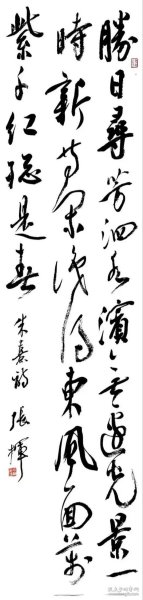 勝日尋芳泗水濱無邊光景一
時新等閒識得東風面萬
紫千紅總是春
朱熹詩 張輝